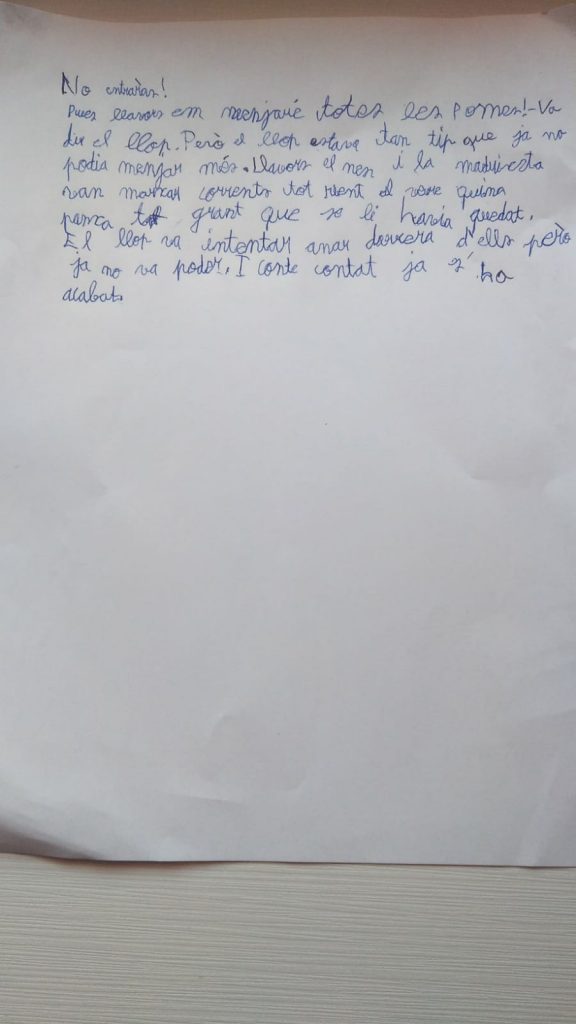 No entraras!
Pues llavors em menjaré totes les pomes!-Va
dir el llop. Però el llop estava tan tip que ja no
podia menjar més. Llavors el nen i la maduixeta
van marxar corrents tot rient al veure quina
panxa grant que se li havia quedat.
El llop va intentar anar darrera d'ells però
ja no va poder. I conte contat ja s'ha
acabat.